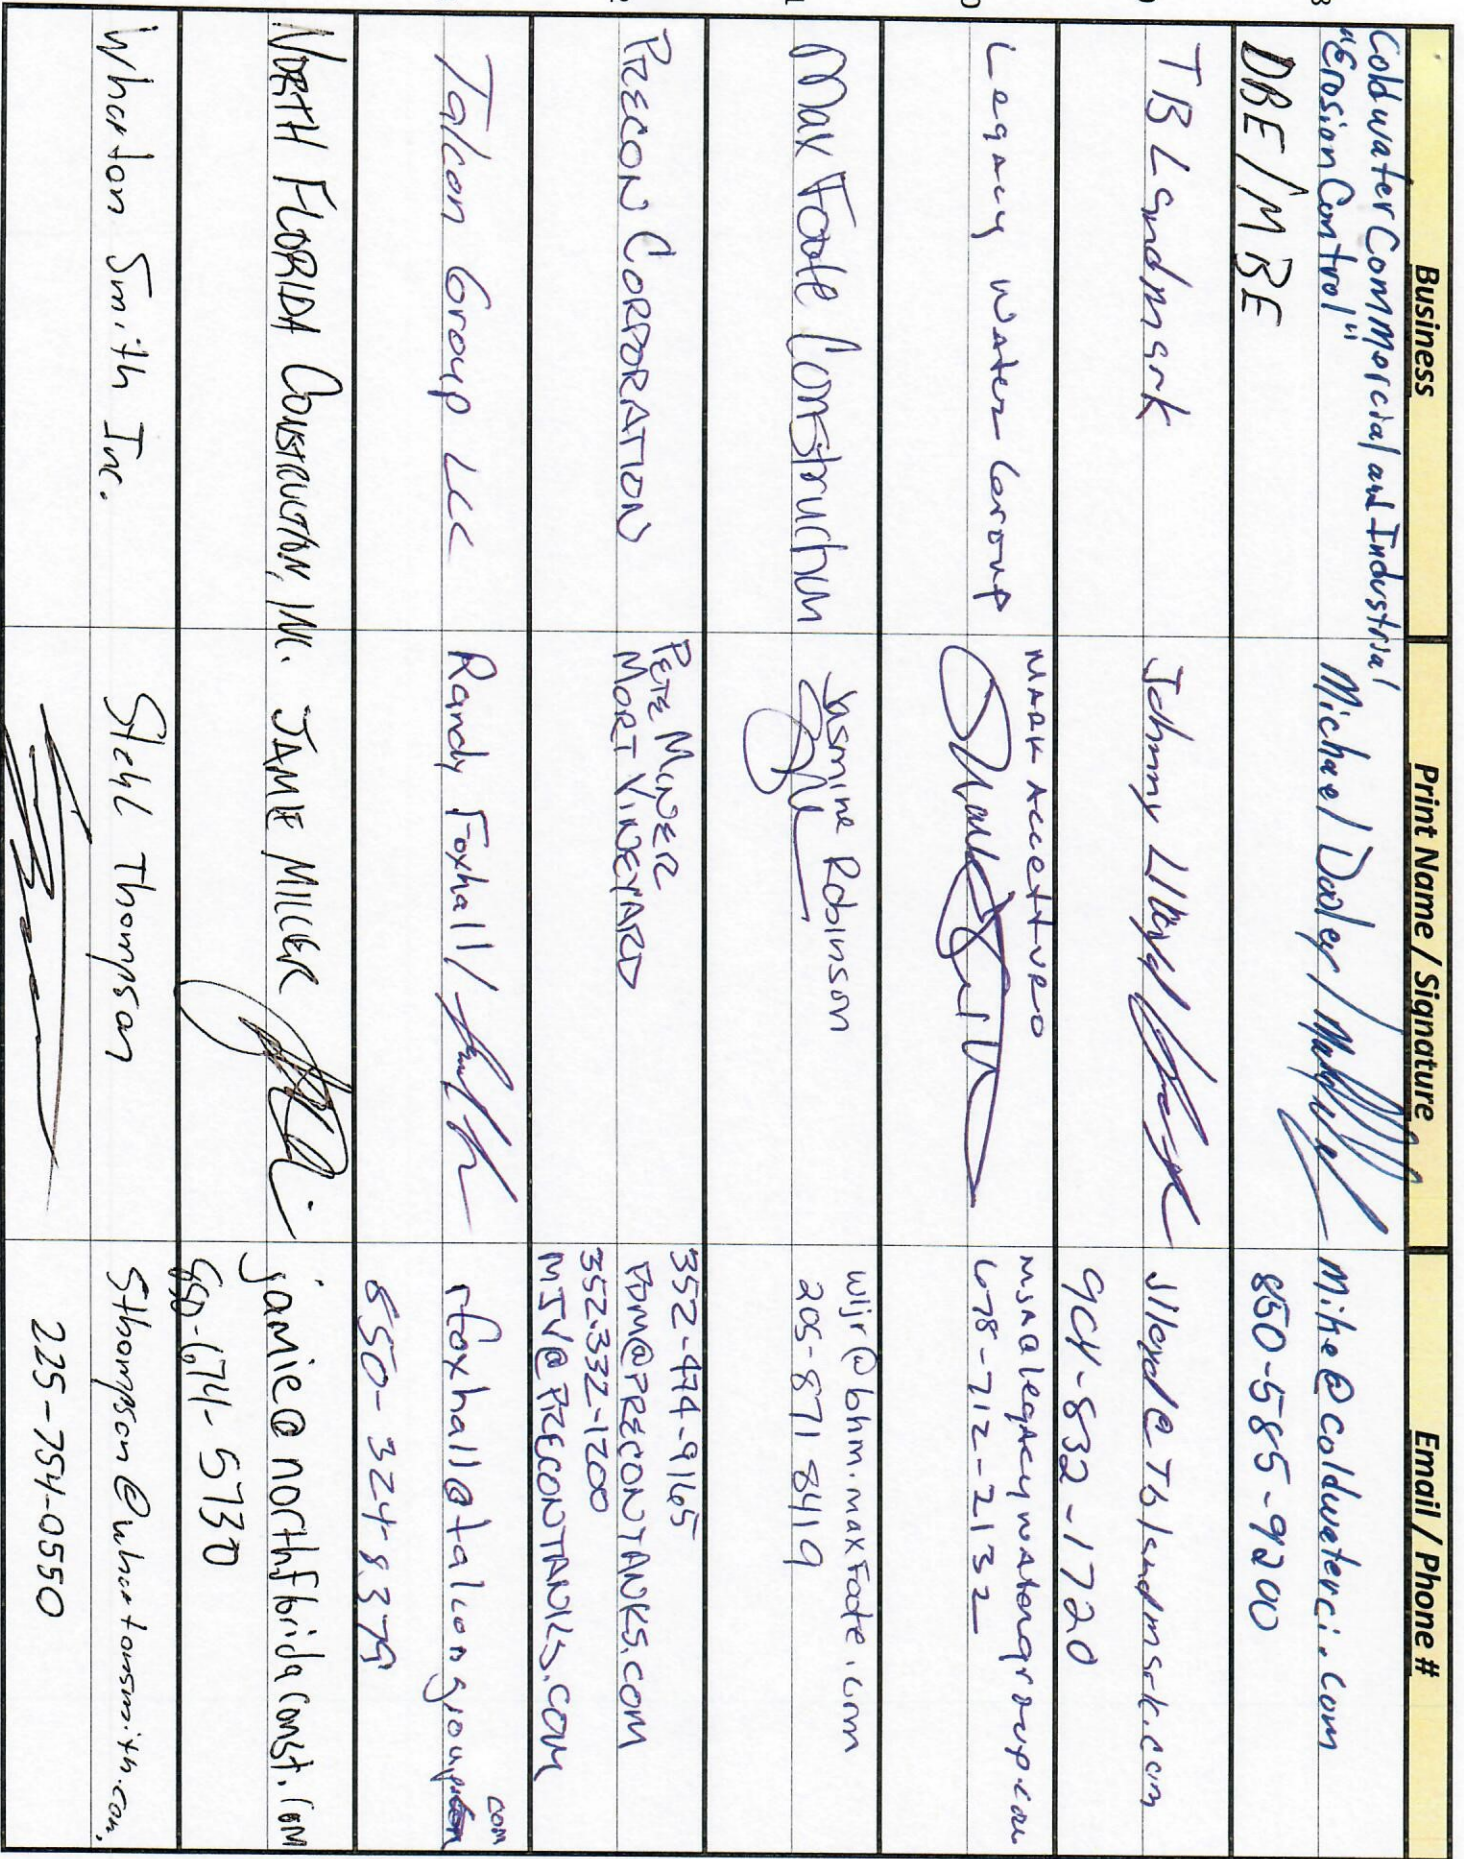 Business
Print Name / Signature
Email / Phone #
Coldwater Commercial and Industrial
"Erosion Control"
DBE/MBE
Michael Dooley /
mike@coldwaterci.com
850-585-9200
TB Landmark
Johnny Lloyd /
jlloyd@Tblandmark.com
904-832-1720
Legacy Water Group
MARK Accetturo
msa@legacywatergroup.com
678-712-2132
Max Foote Construction
Jasmine Robinson
wljr@bhm.maxfoote.com
205-871-8419
PRECON CORPORATION
PETE MINER
MORT VINEYARD
352-474-9165
PDM@PRECONTANKS.COM
352-332-1200
MJV@PRECONTANKS.COM
Talcon Group LLC
Randy Foxhall /
rfoxhall@talcongroup.com
850-324-8379
NORTH FLORIDA CONSTRUCTION, INC.
JAMIE MILLER
jamie@northfloridaconst.com
850-674-5730
Wharton Smith Inc.
Stehl Thompson
Sthompson@whartonsmith.com
225-754-0550